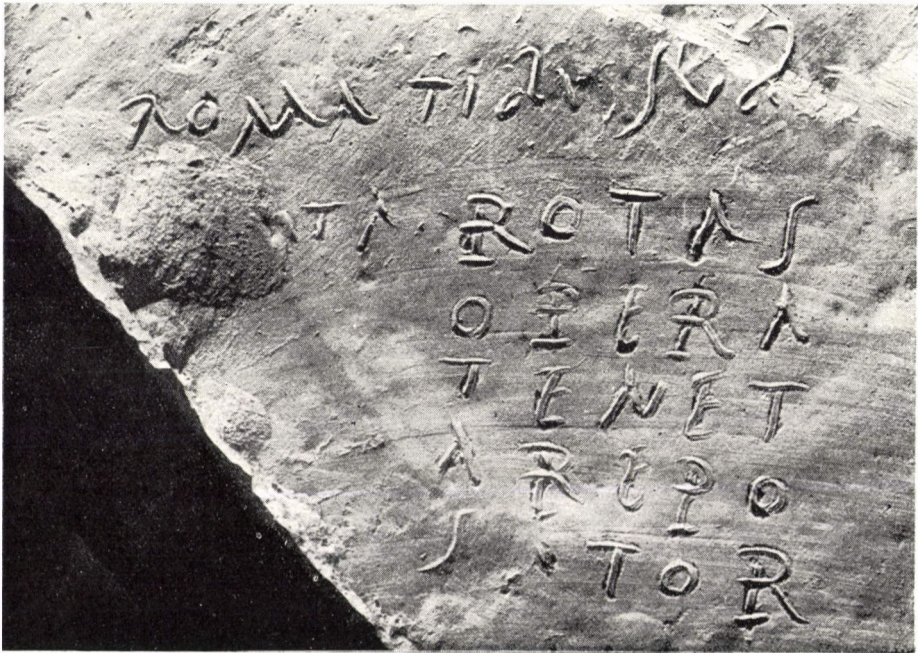 ROMA TIBI SVB
TA ROTAS
OPERA
TENET
AREPO
SATOR